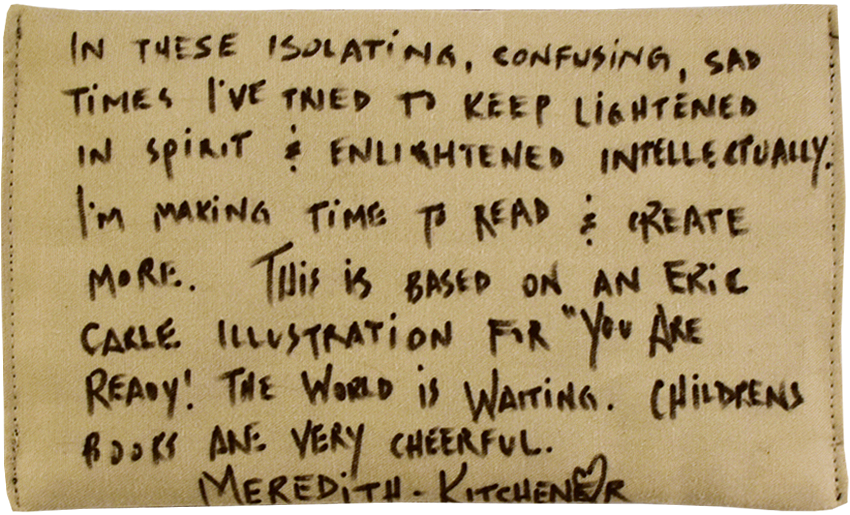 IN THESE ISOLATING, CONFUSING, SAD
TIMES I'VE TRIED TO KEEP LIGHTENED
IN SPIRIT & ENLIGHTENED INTELLECTUALLY.
I'M MAKING TIME TO READ & CREATE
MORE. THIS IS BASED ON AN ERIC
CARLE ILLUSTRATION FOR "YOU ARE
READY! THE WORLD IS WAITING. CHILDRENS
BOOKS ARE VERY CHEERFUL.
MEREDITH - KITCHENER